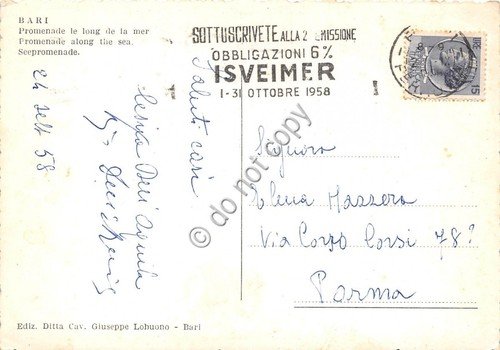 BARI
Promenade le long de la mer
Promenade along the sea.
Seepromenade.
SOTTOSCRIVETE ALLA 2ª EMISSIONE
OBBLIGAZIONI 6%
ISVEIMER
1-31 OTTOBRE 1958
15
24 sett 58
Saluti cari
Signora
Elena Mazzera
Via Corzo Corsi 78?
Parma
do not copy
Ediz. Ditta Cav. Giuseppe Lobuono - Bari